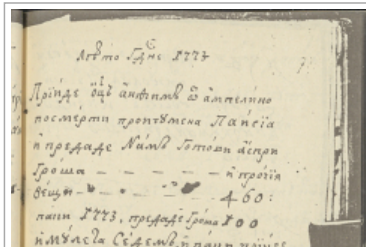 Лѣто Гдⷭ҇не 1773
Прїиде ѻ҆ц҃ъ а҆нѳимъ ѿ ампелино
по смерти проигꙋмена Паисїа
и҆ предаде Намъ Готови аспри
Гроша — — — — — и҆ прочїѧ
вещи — — — — — 460:
паки 1773, предаде гроша 100